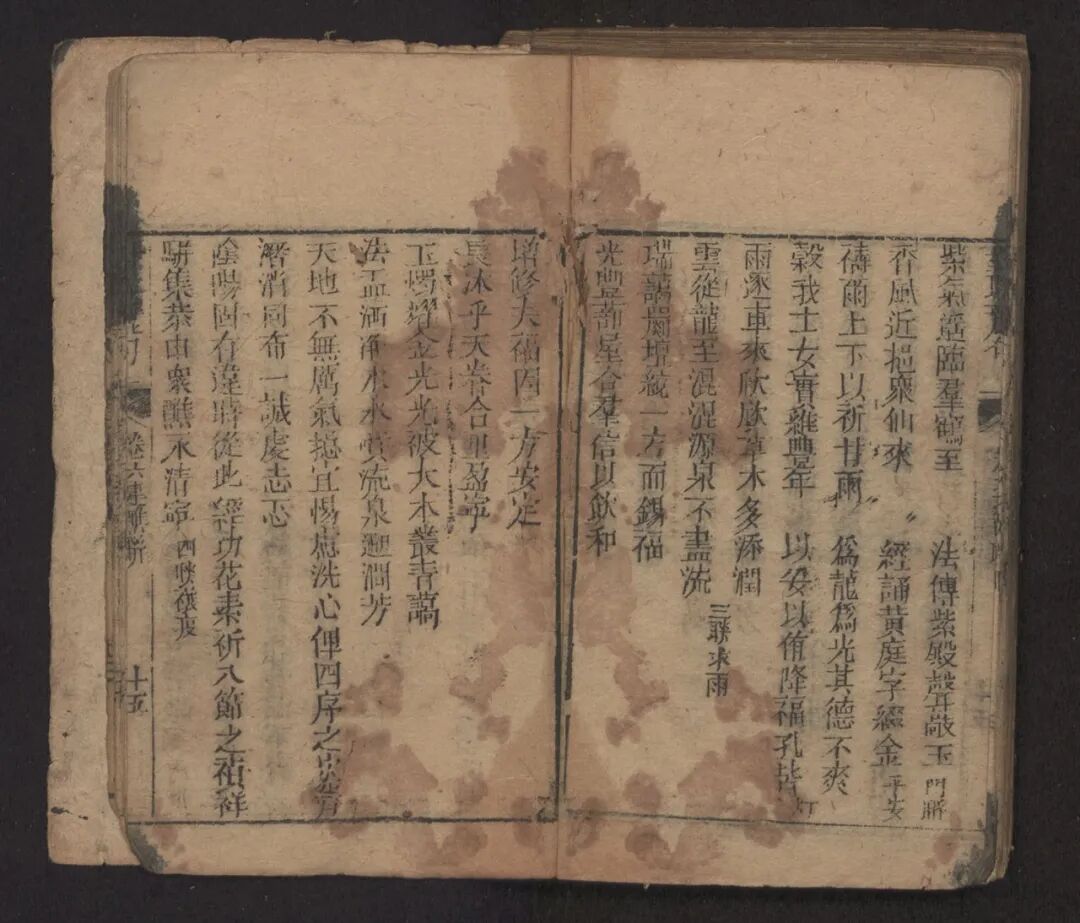 紫氣遙臨羣鶴至　法傳紫殿聲敲玉 門聯
香風近挹衆仙來　經誦黃庭字綴金 平安
禱爾上下以祈甘雨　爲龍爲光其德不爽
穀我士女實維豐年　以安以侑降福孔皆
雨逐車來欣欣草木多添潤
雲從龍至混混源泉不盡流 三聯求雨
瑞靄 壇綏一方而錫福
光豐蔀星合羣信以飲和
增修大福 一方安定
長沐乎天眷合里盈寧
玉燭耀金光光被大木叢青靄
法盂洒淨水水噴流泉 潤芳
天地不無厲氣 宜惕慮洗心俾四序之
潛消同布一誠虔志
陰陽固有違時從此 功 素祈八節之禎祥
駢集恭由衆醮永清寧
卷六
廿五